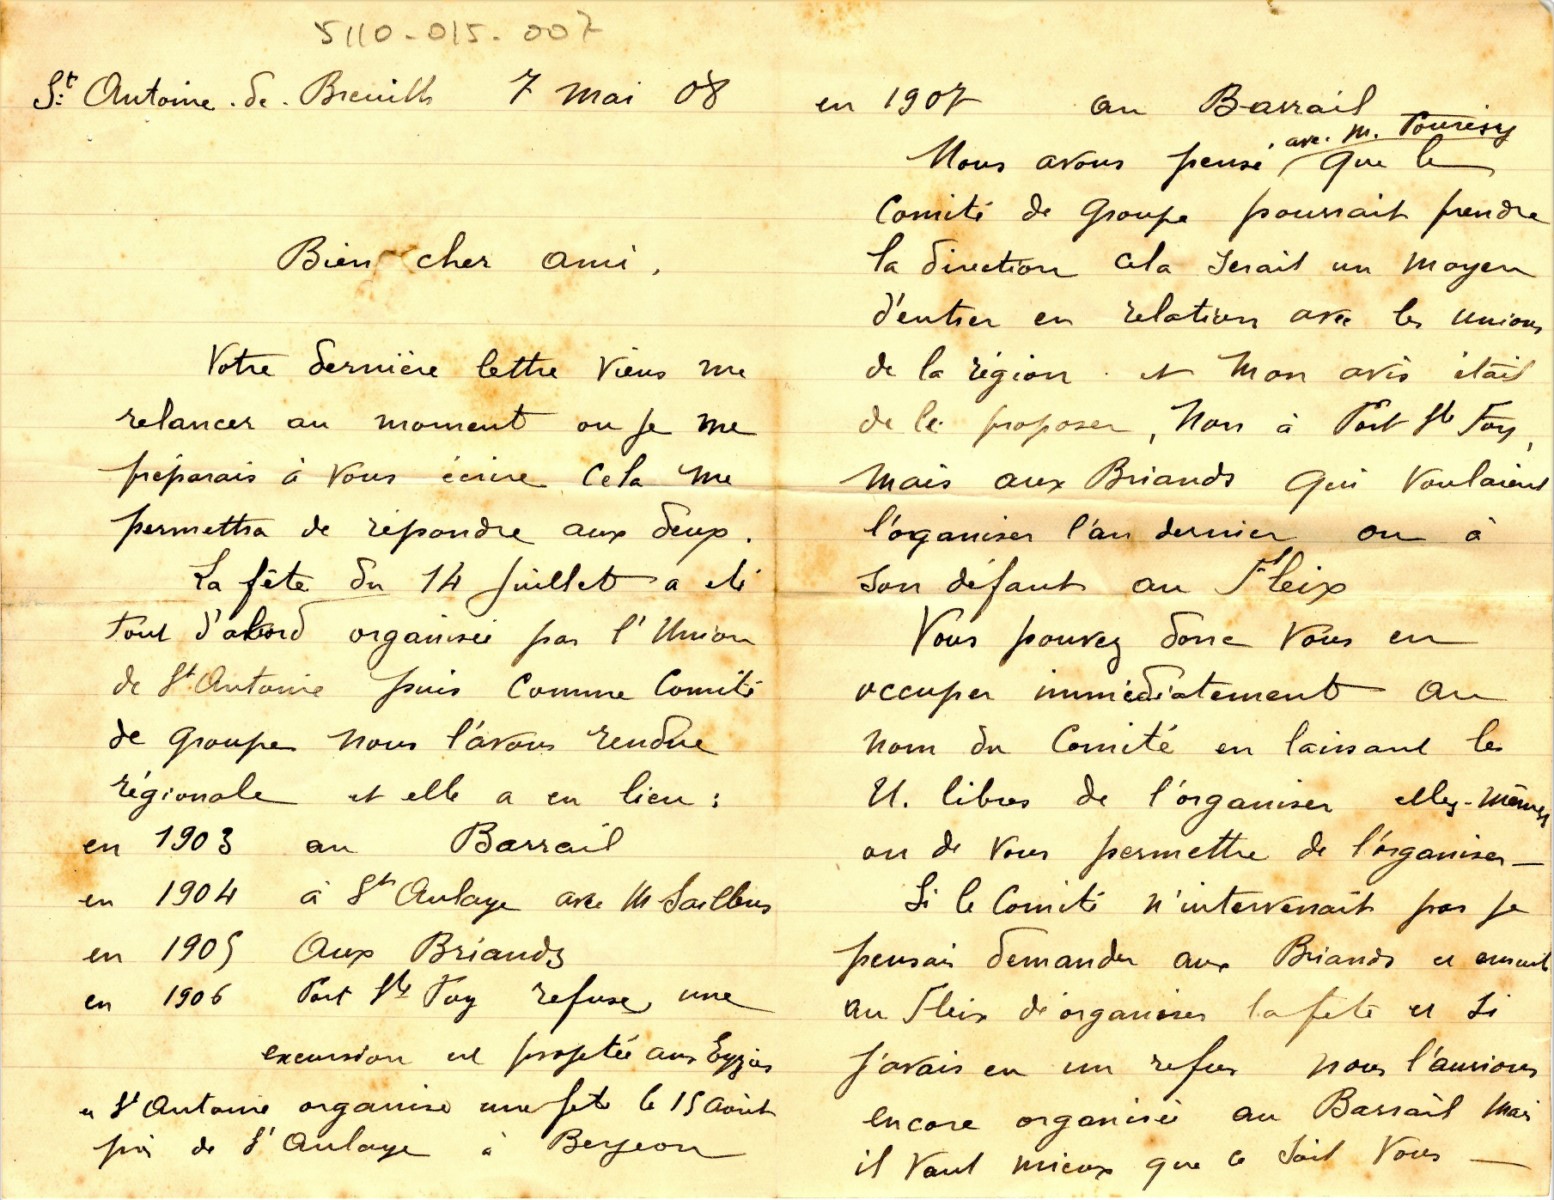 5110-015-007
St Antoine de Breuilh 7 mai 08
Bien cher ami,
Votre dernière lettre viens me
relancer au moment ou je me
préparais à vous écrire Cela me
permettra de répondre aux deux.
La fête du 14 Juillet a été
tout d'abord organisée par l'Union
de St Antoine puis comme Comité
de Groupe nous l'avons rendue
régionale et elle a eu lieu :
en 1903 au Barrail
en 1904 à St Aulaye avec M Saillens
en 1905 Aux Briands
en 1906 Port Ste Foy refuse, une
excursion est projetée aux Eyzies
et St Antoine organise une fete le 15 Aout
près de St Aulaye à
en 1907 au Barrail
Nous avons pensé, avec M. que le
Comité de Groupe pourrait prendre
la direction cela serait un moyen
d'entrer en relation avec les unions
de la région. et mon avis était
de le proposer, non à Port Ste Foy,
mais aux Briands qui voulaient
l'organiser l'an dernier ou à
son défaut au Fleix
Vous pouvez donc vous en
occuper immédiatement au
nom du Comité en laissant les
U. libres de l'organiser elles-mêmes
ou de vous permettre de l'organiser —
Si le Comité n'intervenait pas je
pensais demander aux Briands et ensuite
au Fleix d'organiser la fête et si
j'avais eu un refus nous l'aurions
encore organisée au Barrail mais
il vaut mieux que ce soit vous —